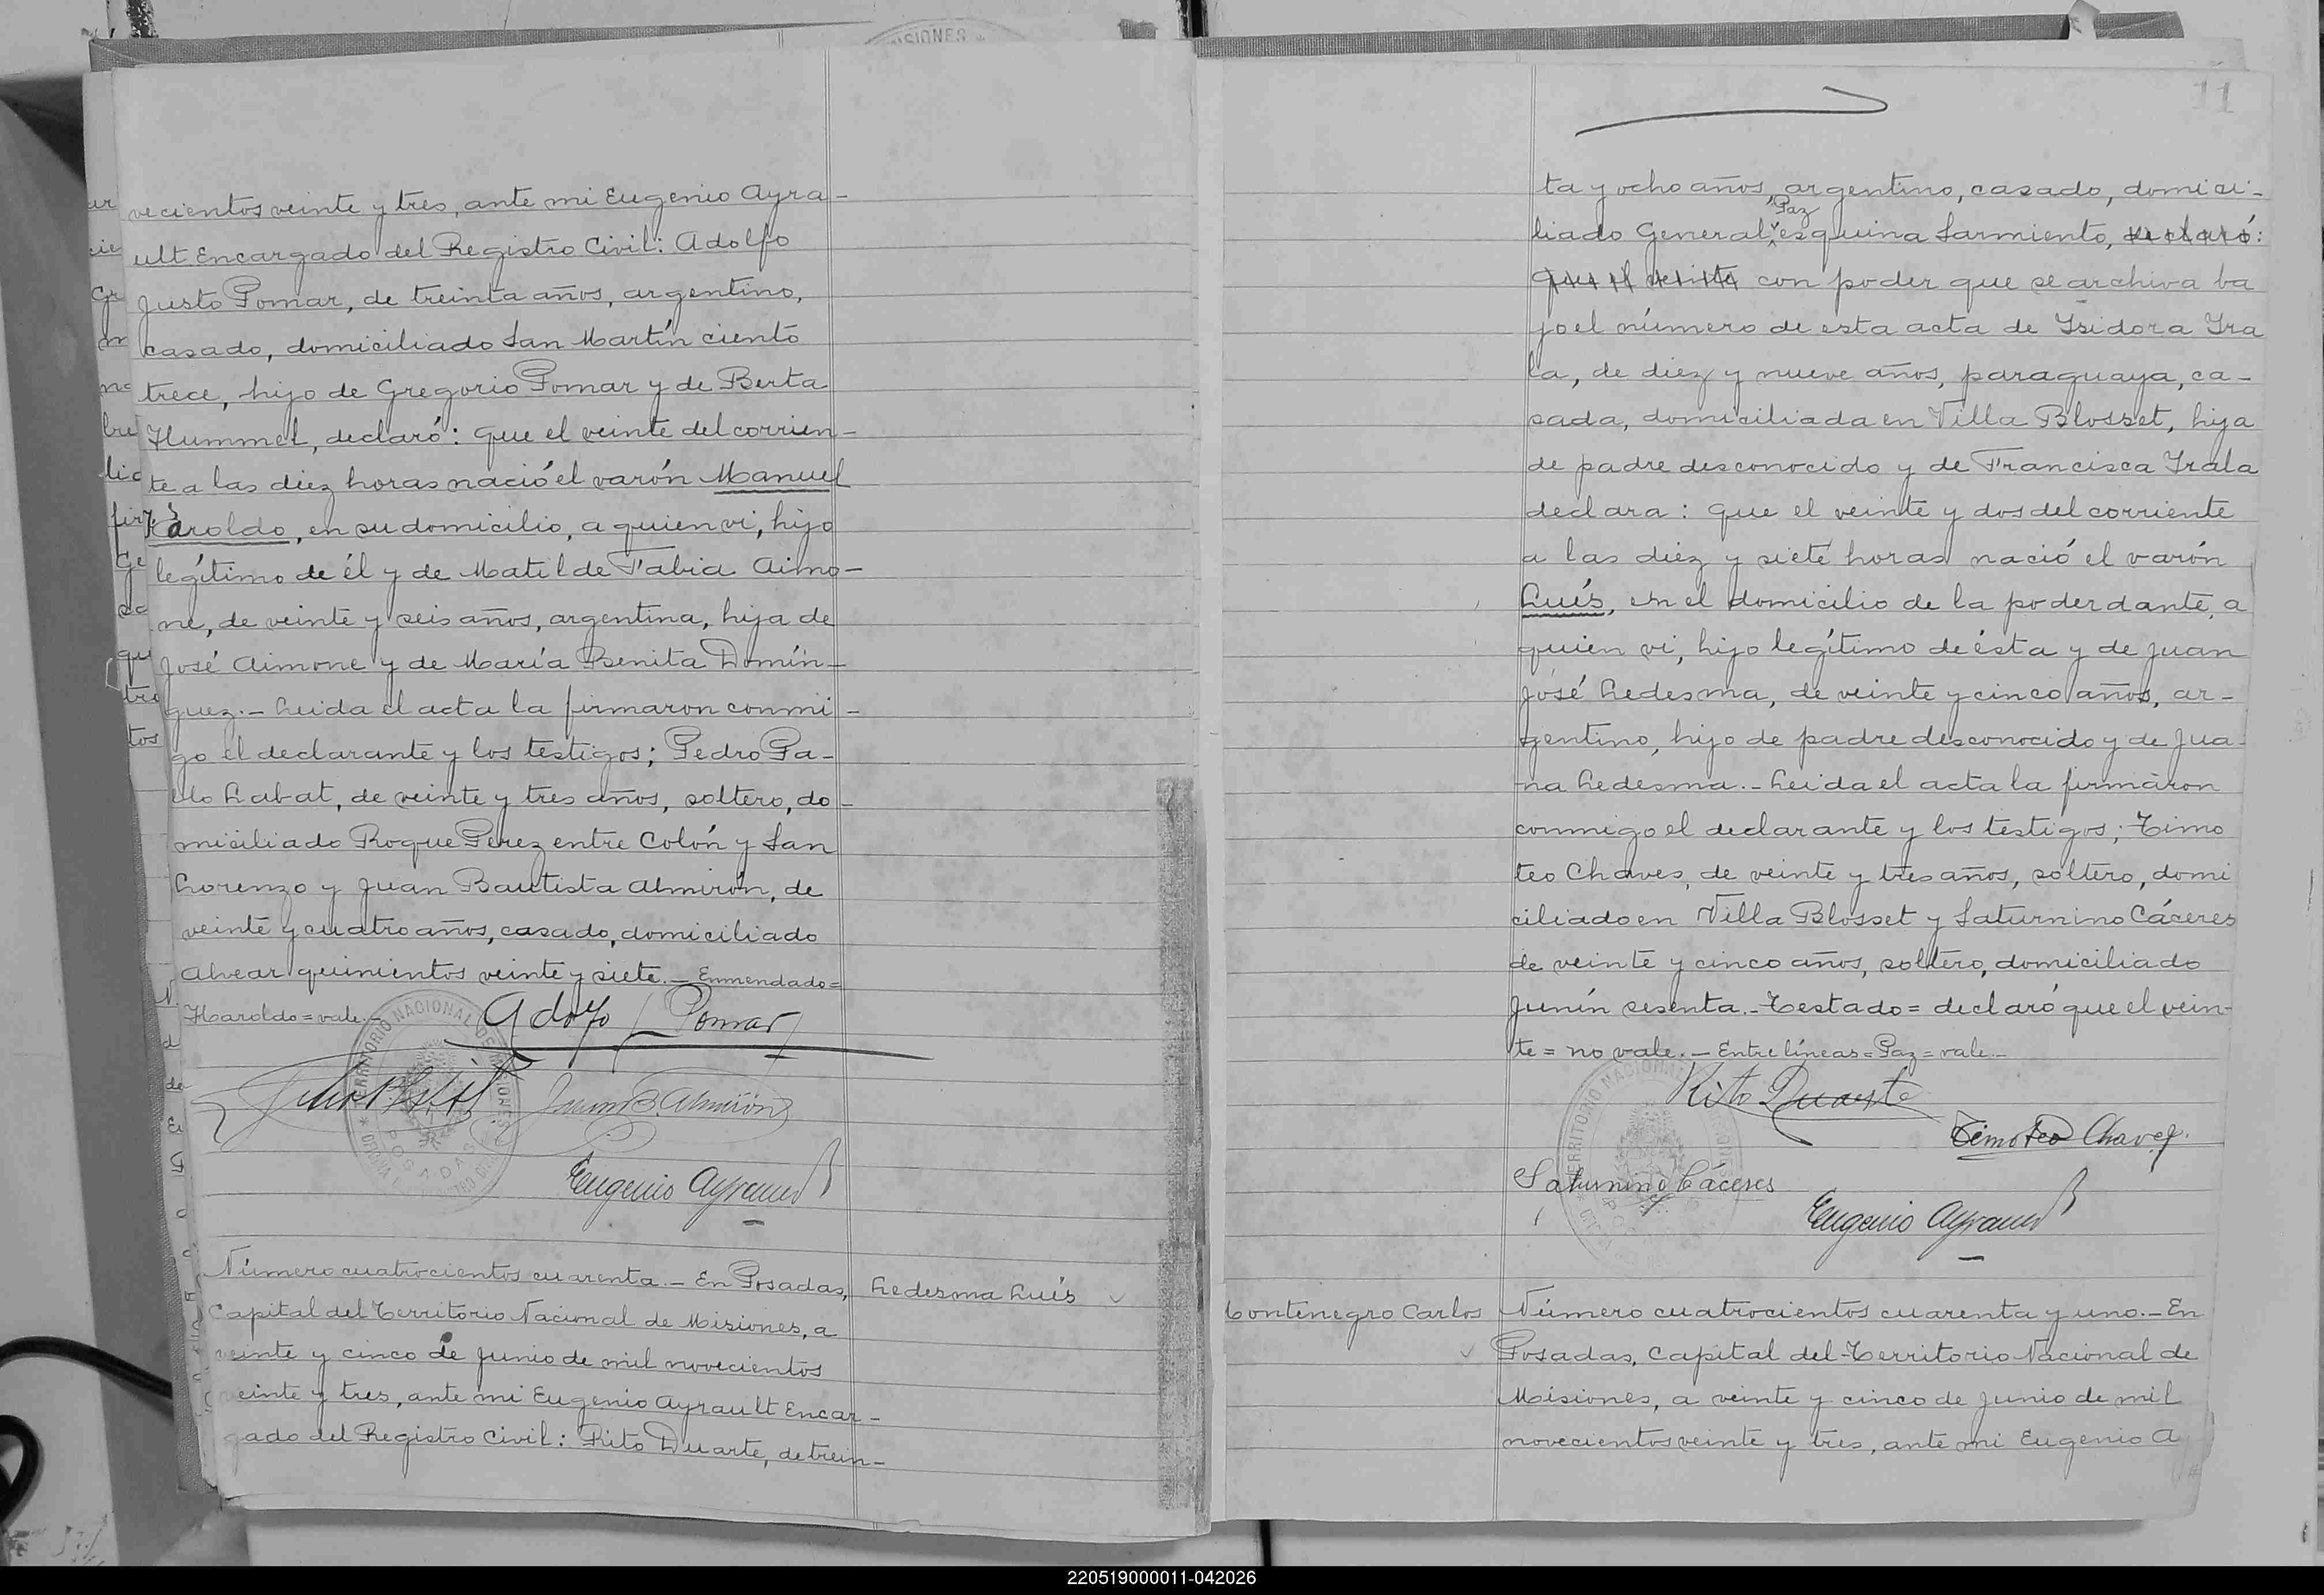 vecientos veinte y tres, ante mi Eugenio Ayra-
ult Encargado del Registro Civil: Adolfo
Justo Pomar, de treinta años, argentino,
casado, domiciliado San Martín ciento
trece, hijo de Gregorio Pomar y de Berta
Hummel, declaró: que el veinte del corrien-
te a las diez horas nació el varón Manuel
Haroldo, en su domicilio, a quien vi, hijo
legítimo de él y de Matilde Fabia Aimo-
ne, de veinte y seis años, argentina, hija de
José Aimone y de María Benita Domín-
guez.- Leida el acta la firmaron conmi-
go el declarante y los testigos; Pedro Pa-
blo Labat, de veinte y tres años, soltero, do-
miciliado Roque Perez entre Colón y San
Lorenzo y Juan Bautista Almirón, de
veinte y cuatro años, casado, domiciliado
Alvear quinientos veinte y siete.- Enmendado=
Haroldo=vale.-
Adolfo J Pomar
Juan B Almirón
Eugenio Ayrault
Número cuatrocientos cuarenta.- En Posadas,
Capital del Territorio Nacional de Misiones, a
veinte y cinco de Junio de mil novecientos
veinte y tres, ante mi Eugenio Ayrault Encar-
gado del Registro Civil: Rito Duarte, de trein-
Ledesma Luís
11
ta y ocho años, argentino, casado, domici-
liado General Paz esquina Sarmiento, declaró:
que el veinte con poder que se archiva ba
jo el número de esta acta de Isidora Ira
la, de diez y nueve años, paraguaya, ca-
sada, domiciliada en Villa Blosset, hija
de padre desconocido y de Francisca Irala
declara: que el veinte y dos del corriente
a las diez y siete horas nació el varón
Luís, en el domicilio de la poderdante, a
quien vi, hijo legítimo de ésta y de Juan
José Ledesma, de veinte y cinco años, ar-
gentino, hijo de padre desconocido y de Jua-
na Ledesma.- Leida el acta la firmaron
conmigo el declarante y los testigos; Timo
teo Chaves, de veinte y tres años, soltero, domi
ciliado en Villa Blosset y Saturnino Cáceres
de veinte y cinco años, soltero, domiciliado
Junín sesenta.- Testado= declaró que el vein-
te= no vale.- Entre líneas= Paz= vale.-
Rito Duarte
Timoteo Chavez.
Saturnino Cáceres
Eugenio Ayrault
Montenegro Carlos
Número cuatrocientos cuarenta y uno.- En
Posadas, Capital del Territorio Nacional de
Misiones, a veinte y cinco de Junio de mil
novecientos veinte y tres, ante mi Eugenio A
220519000011-042026